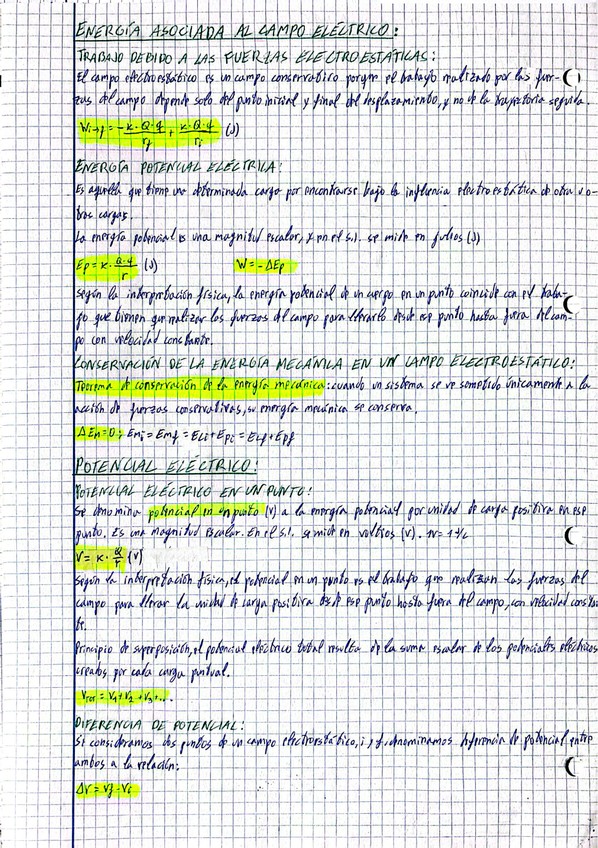 ENERGÍA ASOCIADA AL CAMPO ELÉCTRICO:
TRABAJO DEBIDO A LAS FUERZAS ELECTROESTÁTICAS:
El campo electroestático es un campo conservativo porque el trabajo realizado por las fuer-
zas del campo depende solo del punto inicial y final del desplazamiento, y no de la trayectoria seguida.
Wi→f = -K·Q·q/rf + K·Q·q/ri (J)
ENERGÍA POTENCIAL ELÉCTRICA:
Es aquella que tiene una determinada carga por encontrarse bajo la influencia electroestática de otra u o-
tras cargas.
La energía potencial es una magnitud escalar, y en el s.i. se mide en julios (J)
Ep = K· Q·q/r (J) W = -ΔEp
Según la interpretación física, la energía potencial de un cuerpo en un punto coincide con el traba-
jo que tienen que realizar las fuerzas del campo para llevarlo desde ese punto hasta fuera del cam-
po con velocidad constante.
CONSERVACIÓN DE LA ENERGÍA MECÁNICA EN UN CAMPO ELECTROESTÁTICO:
Teorema de conservación de la energía mecánica: cuando un sistema se ve sometido únicamente a la
acción de fuerzas conservativas, su energía mecánica se conserva.
ΔEm=0; Emi = Emf = Eci+Epi = Ecf+Epf
POTENCIAL ELÉCTRICO:
POTENCIAL ELÉCTRICO EN UN PUNTO:
Se denomina potencial en un punto (V) a la energía potencial por unidad de carga positiva en ese
punto. Es una magnitud escalar. En el S.I. se mide en voltios (V). 1V= 1 J/C
V = K· Q/r (V)
Según la interpretación física, el potencial en un punto es el trabajo que realizan las fuerzas del
campo para llevar la unidad de carga positiva desde ese punto hasta fuera del campo, con velocidad constan-
te.
Principio de superposición, el potencial eléctrico total resulta de la suma escalar de los potenciales eléctricos
creados por cada carga puntual.
VTOT = V1+V2+V3+...
DIFERENCIA DE POTENCIAL:
Si consideramos dos puntos de un campo electroestático, i y f, denominamos diferencia de potencial entre
ambos a la relación:
ΔV = Vf - Vi